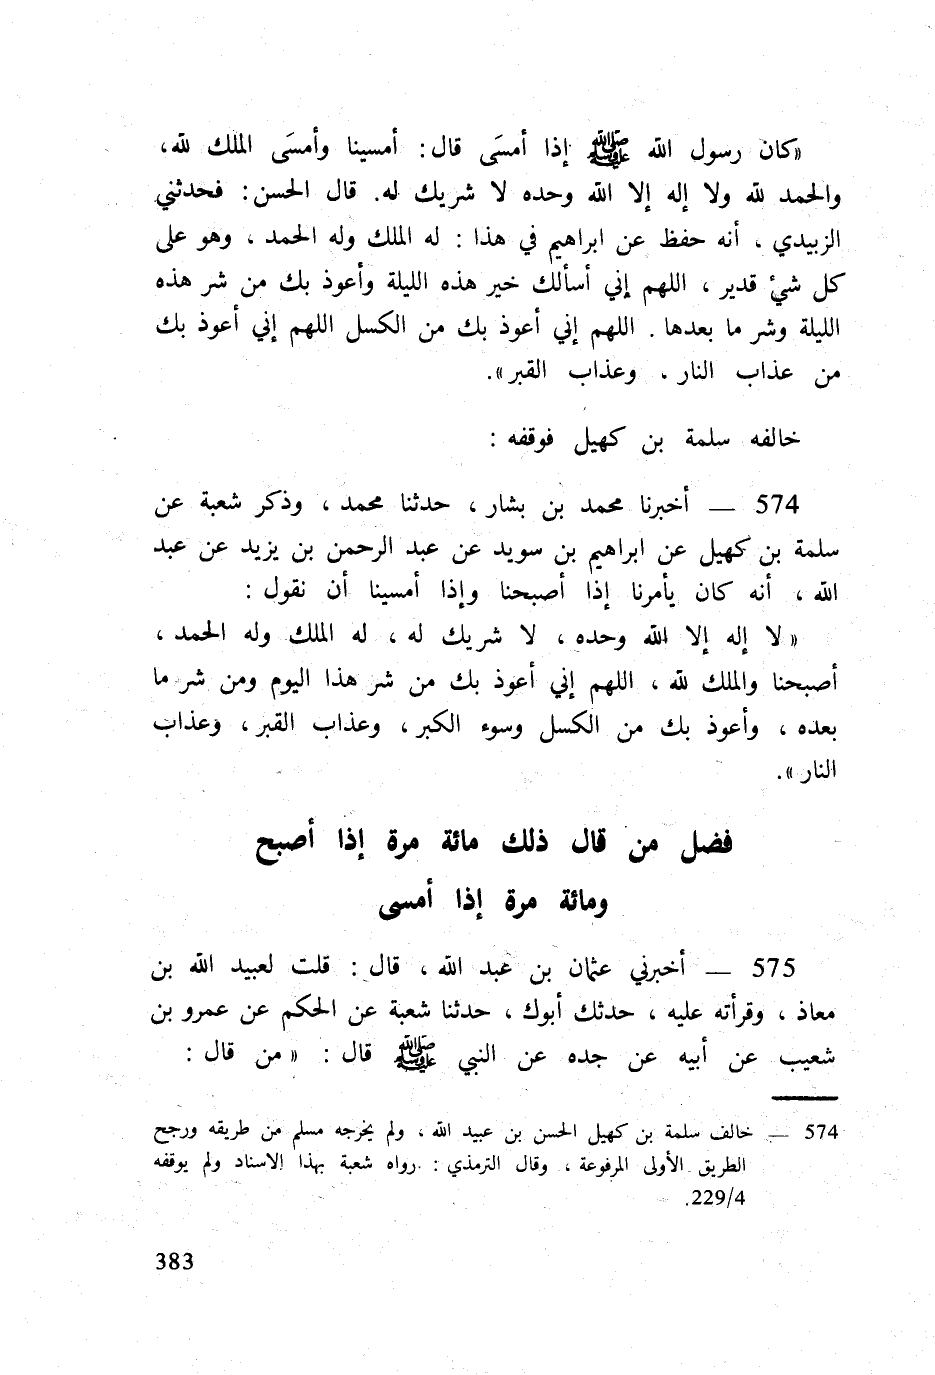 «كان رسول الله ﷺ إذا أمسَى قال: أمسينا وأمسَى الملك لله،
والحمد لله ولا إله إلا الله وحده لا شريك له. قال الحسن: فحدثني
الزبيدي ، أنه حفظ عن ابراهيم في هذا : له الملك وله الحمد ، وهو على
كل شيْ قدير ، اللهم إني أسألك خير هذه الليلة وأعوذ بك من شر هذه
الليلة وشر ما بعدها . اللهم إني أعوذ بك من الكسل اللهم إني أعوذ بك
من عذاب النار . وعذاب القبر».
خالفه سلمة بن كهيل فوقفه :
574 — أخبرنا محمد بن بشار ، حدثنا محمد ، وذكر شعبة عن
سلمة بن كهيل عن ابراهيم بن سويد عن عبد الرحمن بن يزيد عن عبد
الله ، أنه كان يأمرنا إذا أصبحنا وإذا أمسينا أن نقول :
« لا إله إلا الله وحده ، لا شريك له ، له الملك وله الحمد ،
أصبحنا والملك لله ، اللهم إني أعوذ بك من شر هذا اليوم ومن شر ما
بعده ، وأعوذ بك من الكسل وسوء الكبر ، وعذاب القبر ، وعذاب
النار ».
فضل من قال ذلك مائة مرة إذا أصبح
ومائة مرة إذا أمسى
575 — أخبرني عثمان بن عبد الله ، قال : قلت لعبيد الله بن
معاذ ، وقرأته عليه ، حدثك أبوك ، حدثنا شعبة عن الحكم عن عمرو بن
شعيب عن أبيه عن جده عن النبي ﷺ قال : « من قال :
574 — خالف سلمة بن كهيل الحسن بن عبيد الله ، ولم يخرجه مسلم من طريقه ورجح
الطريق الأولى المرفوعة ، وقال الترمذي : رواه شعبة بهذا الاسناد ولم يوقفه
229/4.
383